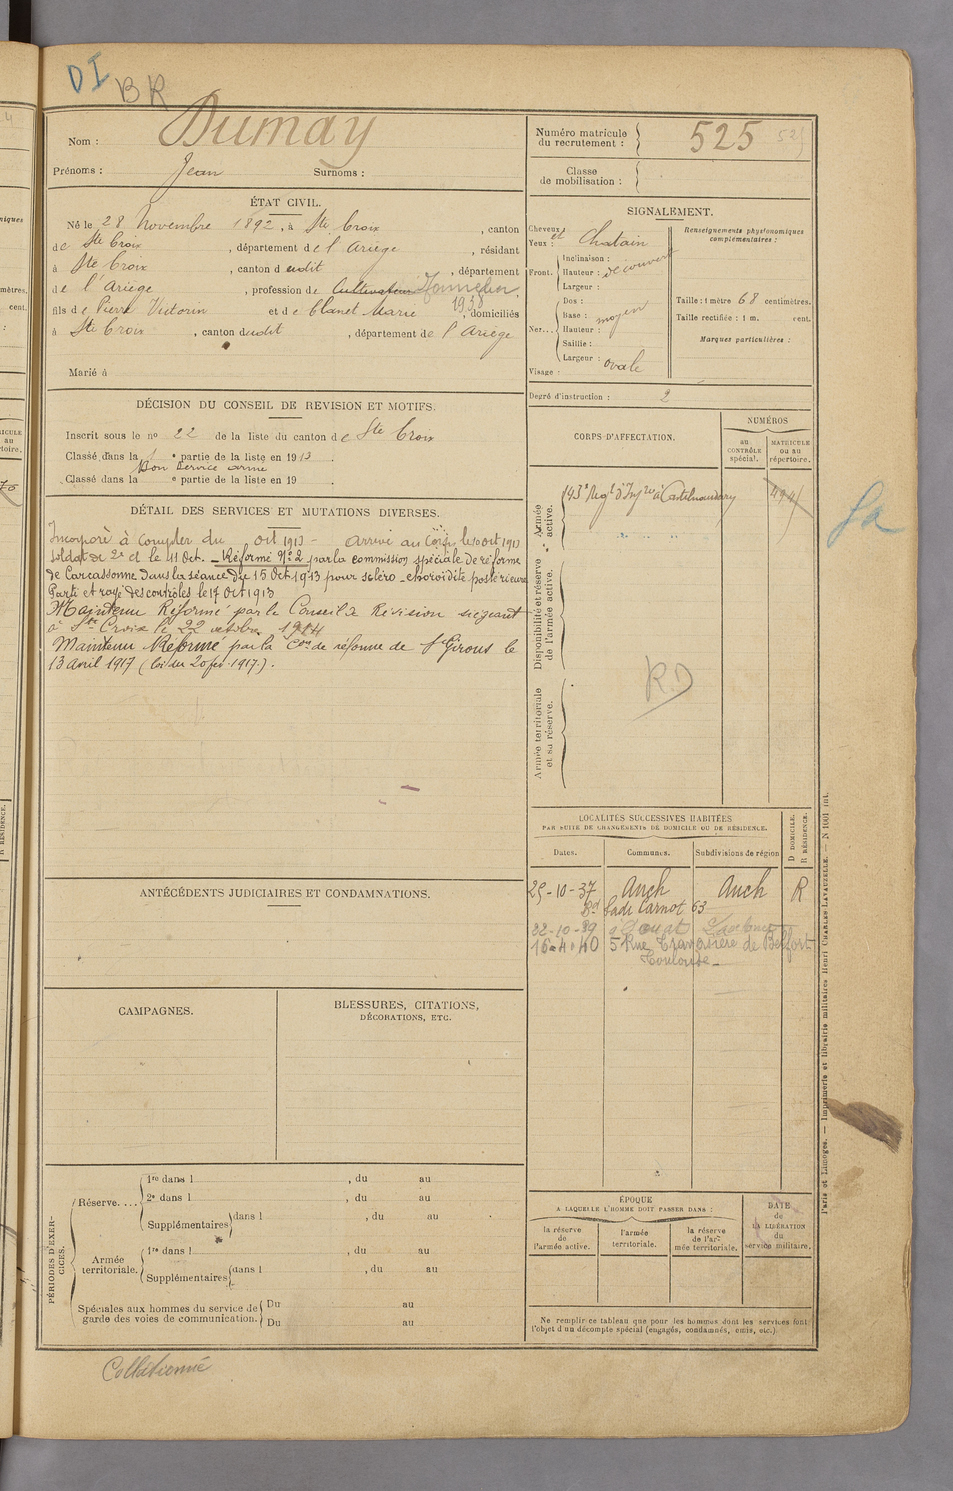 DI
BR
Nom : Dumay
Prénoms : Jean Surnoms :
Numéro matricule du recrutement : 525
525
Classe de mobilisation :
ÉTAT CIVIL.
Né le 28 Novembre 1892, à Ste Croix, canton
de Ste Croix, département de l'Ariège, résidant
à Ste Croix, canton dudit, département
de l'Ariège, profession de Cultivateur
1938
fils de Pierre Victorin et de Blanet Marie, domiciliés
à Ste Croix, canton dudit, département de l'Ariège
Marié à
SIGNALEMENT.
Cheveux et
Yeux : Chatain
Front. Inclinaison :
Hauteur : découvert
Largeur :
Nez... Dos :
Base : moyen
Hauteur :
Saillie :
Largeur :
Visage : ovale
Renseignements physionomiques
complémentaires :
Taille : 1 mètre 68 centimètres.
Taille rectifiée : 1 m. cent.
Marques particulières :
Degré d'instruction : 2
DÉCISION DU CONSEIL DE REVISION ET MOTIFS.
Inscrit sous le no 22 de la liste du canton de Ste Croix
Classé dans la 1 e partie de la liste en 1913.
Bon Service armé
Classé dans la e partie de la liste en 19 .
DÉTAIL DES SERVICES ET MUTATIONS DIVERSES.
Incorporé à compter du oct 1913 - arrivé au Corps le 10 oct 1913
soldat de 2e cl le 11 Oct. - Réformé No 2 par la commission spéciale de réforme
de Carcassonne dans la séance du 15 Oct 1913 pour scléro-choroïdite postérieure
Parti et rayé des contrôles le 17 Oct 1913
Maintenu Réformé par le Conseil de Révision siégeant
à Ste Croix le 22 octobre 1914
Maintenu Réformé par la Con de réforme de St Girons le
13 avril 1917 (loi du 20 fév. 1917).
CORPS D'AFFECTATION.
NUMÉROS
au CONTRÔLE spécial.
MATRICULE ou au répertoire.
Armée active.
143e Regt d'Infrie à Castelnaudary 494
Disponibilité et réserve de l'armée active.
Armée territoriale et sa réserve.
R.D
LOCALITÉS SUCCESSIVES HABITÉES
PAR SUITE DE CHANGEMENTS DE DOMICILE OU DE RÉSIDENCE.
D DOMICILE. R RÉSIDENCE.
Dates. Communes. Subdivisions de région
25-10-37 Auch Auch R
Bd Sadi Carnot 63
22-10-39
16-4-40 5 Rue de Belfort
Toulouse
ANTÉCÉDENTS JUDICIAIRES ET CONDAMNATIONS.
CAMPAGNES.
BLESSURES, CITATIONS,
DÉCORATIONS, ETC.
PÉRIODES D'EXERCICES.
Réserve....
1re dans l , du au
2e dans l , du au
Supplémentaires dans l , du au
Armée territoriale.
1re dans l , du au
Supplémentaires dans l , du au
Spéciales aux hommes du service de
garde des voies de communication.
Du au
Du au
ÉPOQUE
A LAQUELLE L'HOMME DOIT PASSER DANS :
la réserve de l'armée active.
l'armée territoriale.
la réserve de l'armée territoriale.
DATE de LA LIBÉRATION du service militaire.
Ne remplir ce tableau que pour les hommes dont les services font
l'objet d'un décompte spécial (engagés, condamnés, omis, etc.)
Paris et Limoges. — Imprimerie et librairie militaires Henri CHARLES-LAVAUZELLE. — N 1001 int.
Collationné